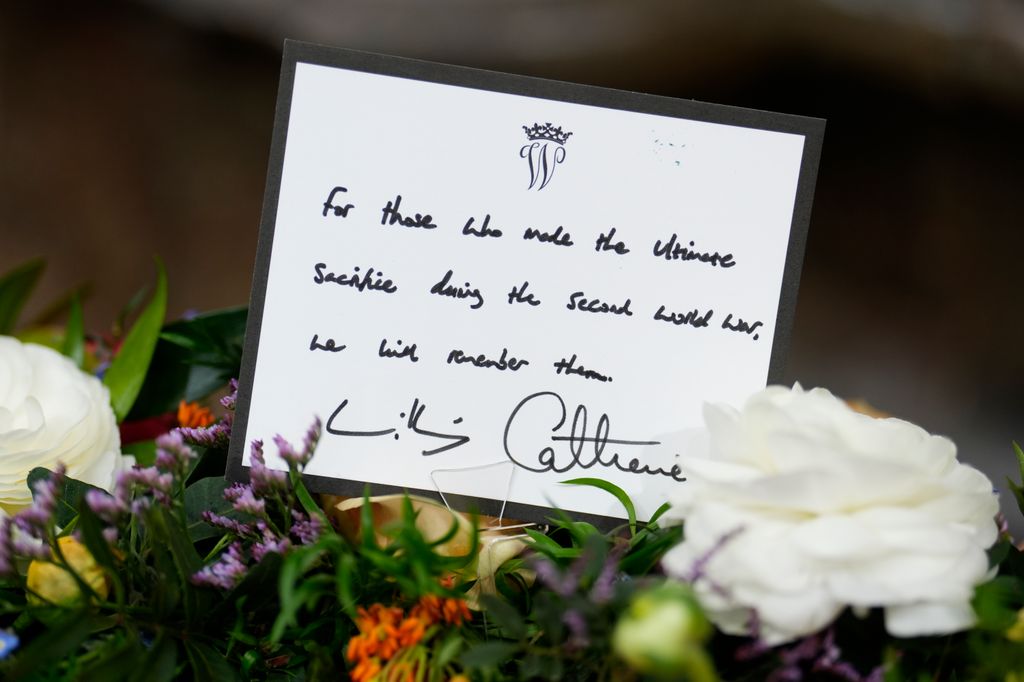 W
For those who made the ultimate
sacrifice during the second world war,
we will remember them.
William Catherine